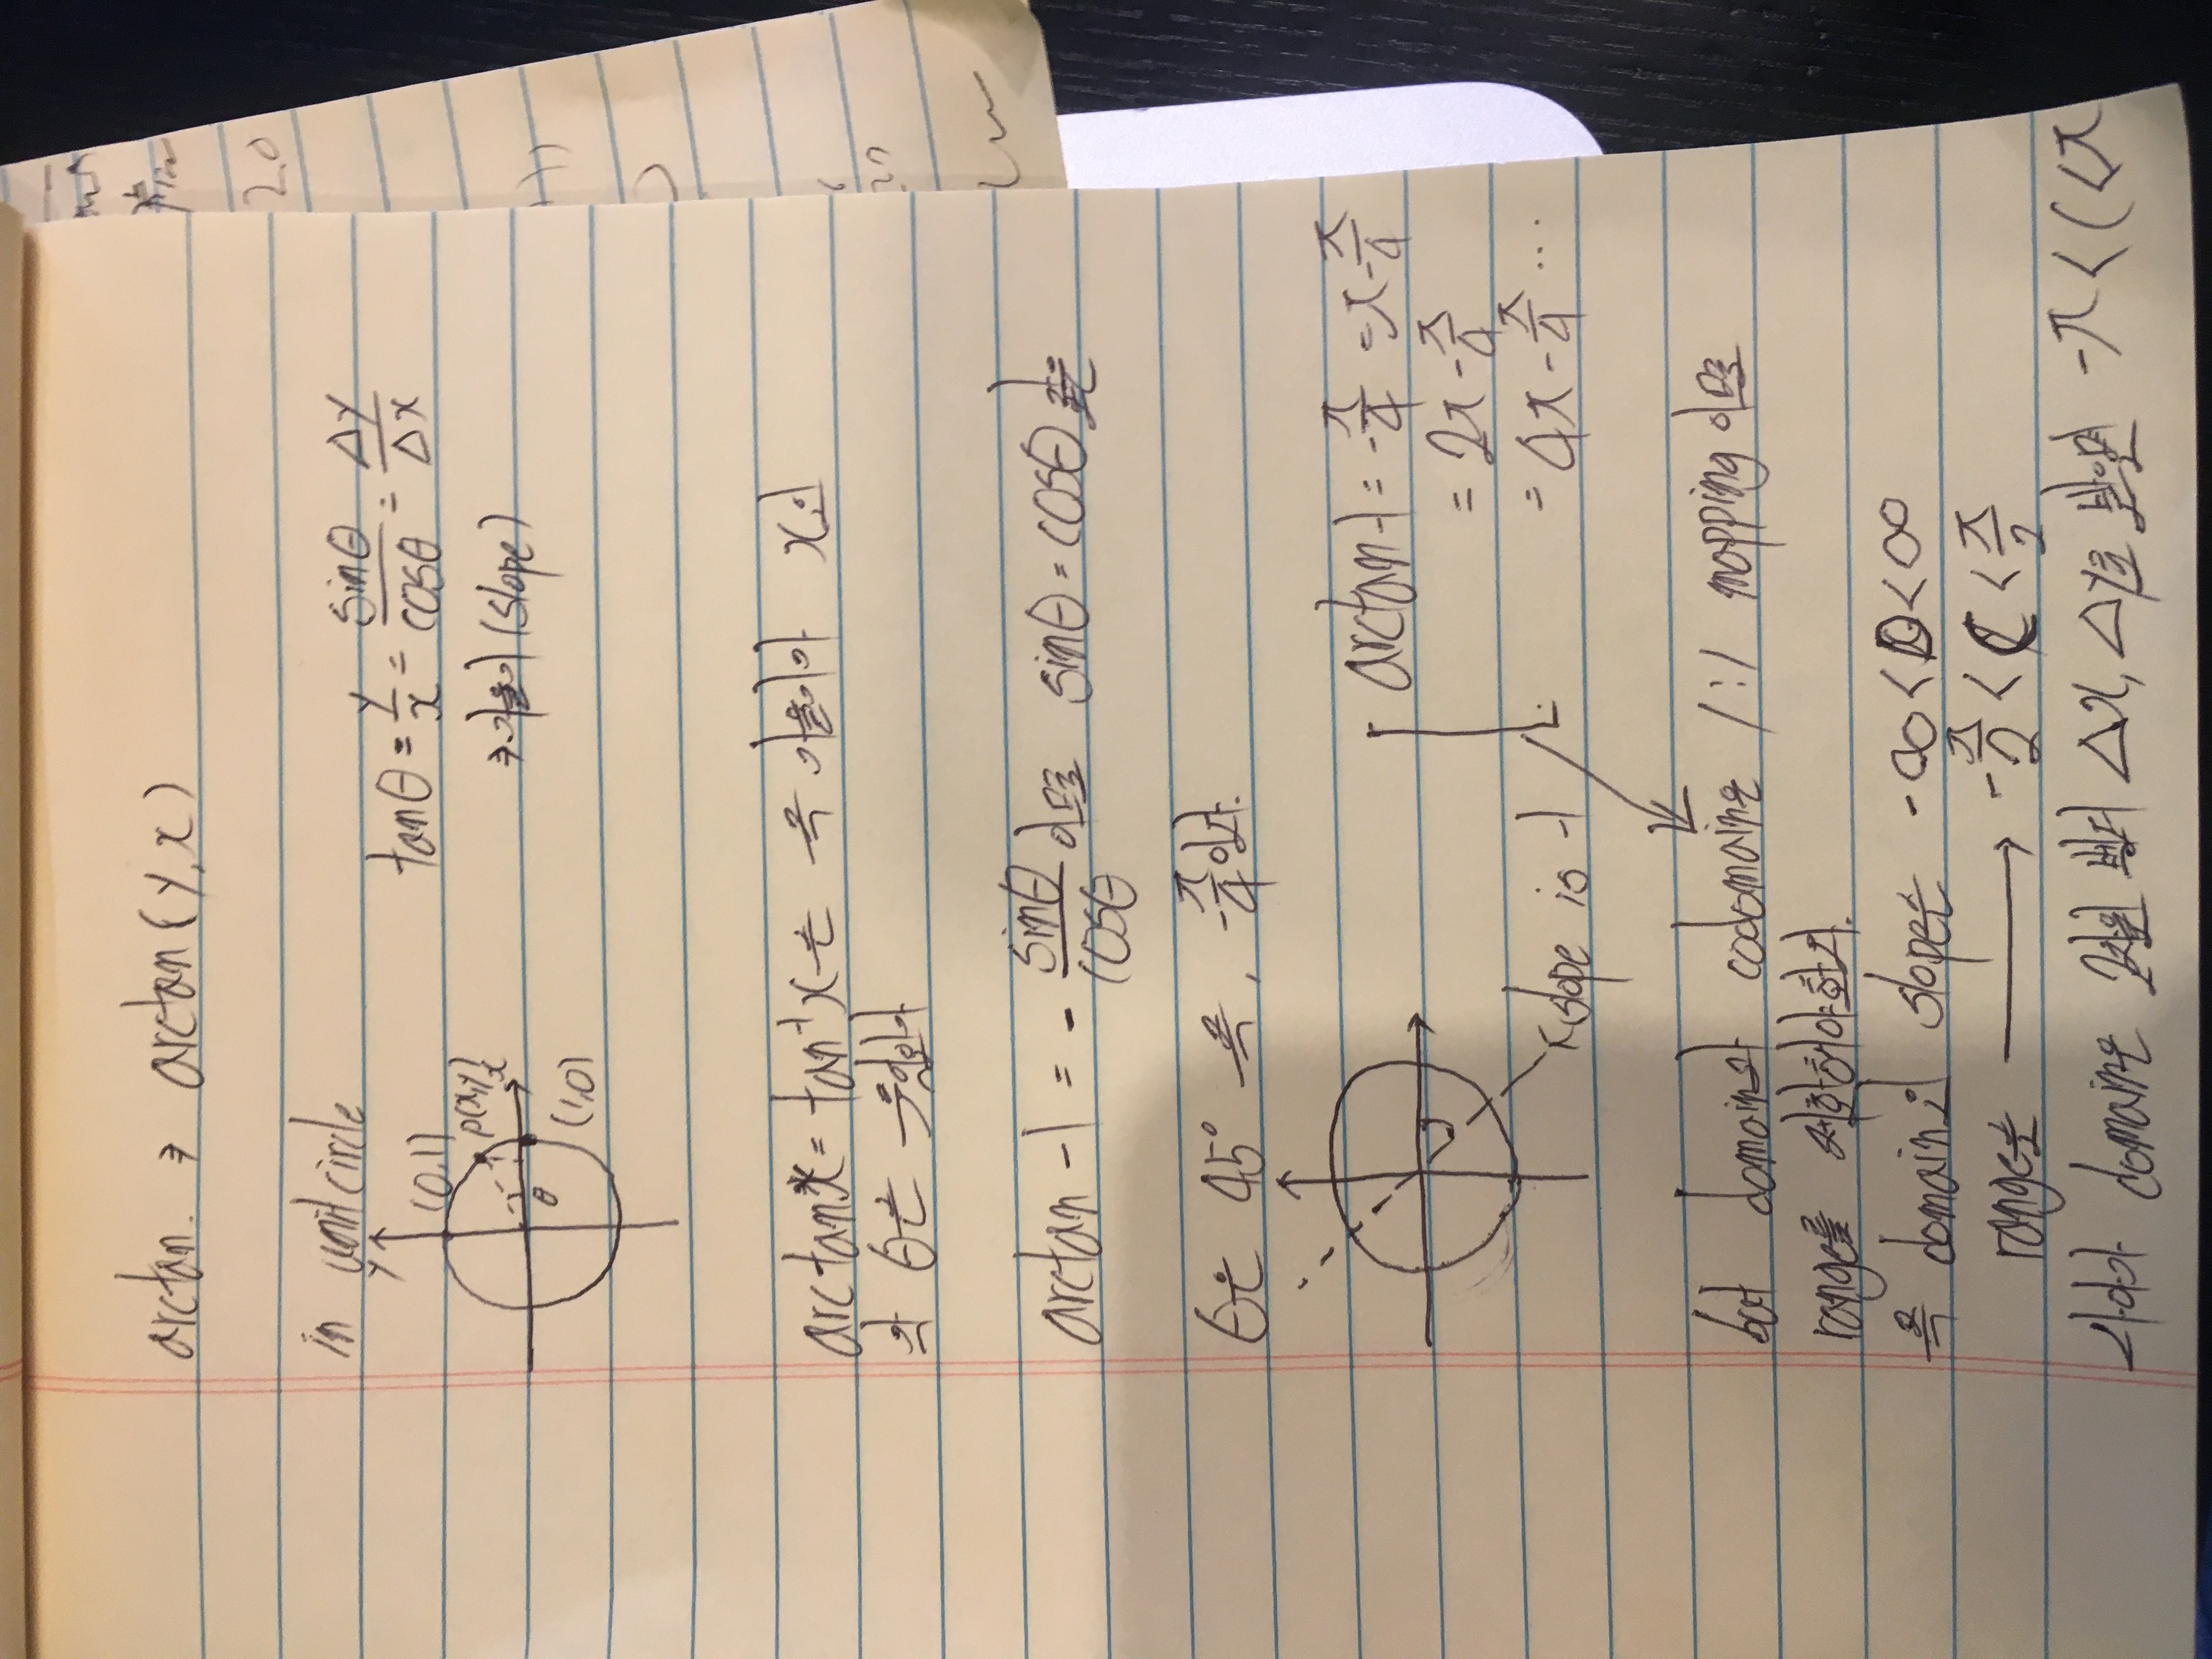 arctan. ⇒ arctan(y,x)
in unit circle
y
(0,1)
P(x,y)
x
θ
(1,0)
tanθ = y/x = sinθ/cosθ = Δy/Δx
⇒ 기울기 (slope)
arctan x = tan⁻¹x는 즉 기울기가 x인
각 θ는 무엇인가
arctan -1 = - sinθ/cosθ 이므로 sinθ = cosθ
θ는 45° 즉, -π/4이다.
slope is -1
arctan -1 = -π/4 = π-π/4
= 2π-π/4
= 4π-π/4 ...
but domain과 codomain은 1:1 mapping 이므로
range를 제한해야한다.
즉 domain인 slope는 -∞ < D < ∞
range는 → -π/2 < C < π/2
domain은 2차원 벡터 Δx, Δy로 받으면 -π < C < π